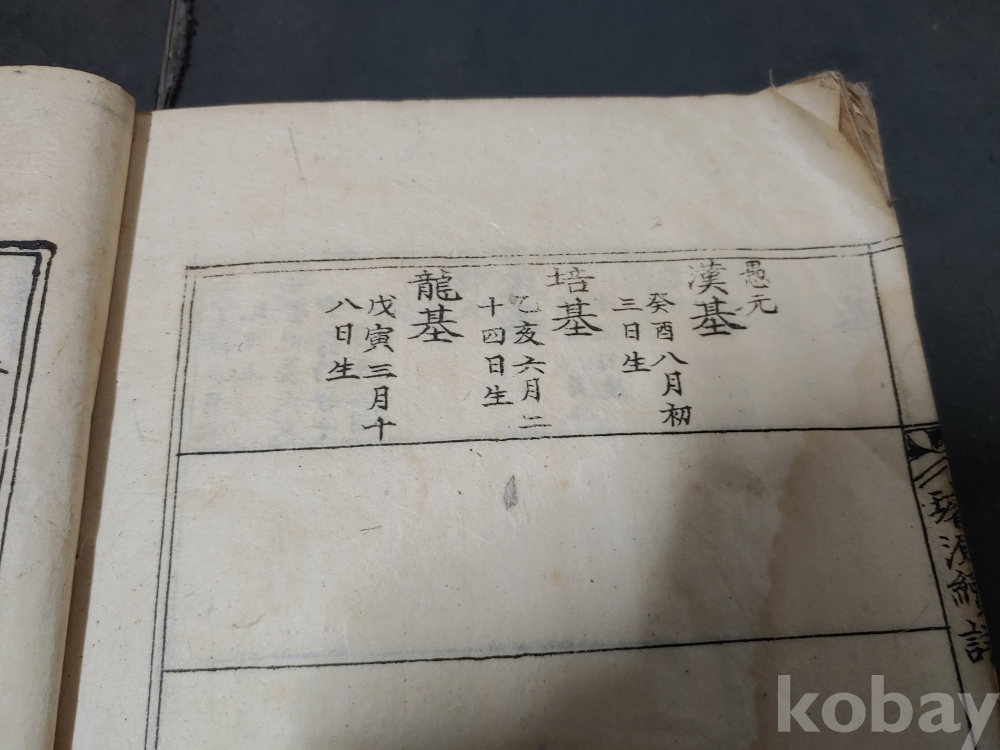 愚元
漢基
癸酉八月初
三日生
培基
乙亥六月二
十四日生
龍基
戊寅三月十
八日生
璿源續譜
kobay